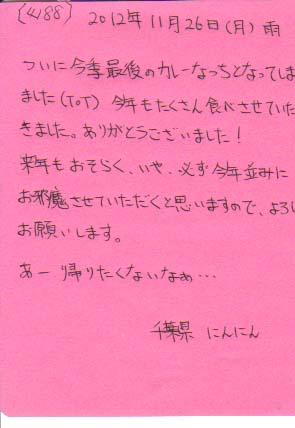 (4188) 2012年11月26日(月)雨
ついに今季最後のカレーなっちとなってしま
ました(ToT) 今年もたくさん食べさせていた
きました。ありがとうございました!
来年もおそらく、いや、必ず今年並みに
お邪魔させていただくと思いますので、よろし
お願いします。
あー 帰りたくないなぁ…
千葉県 にんにん